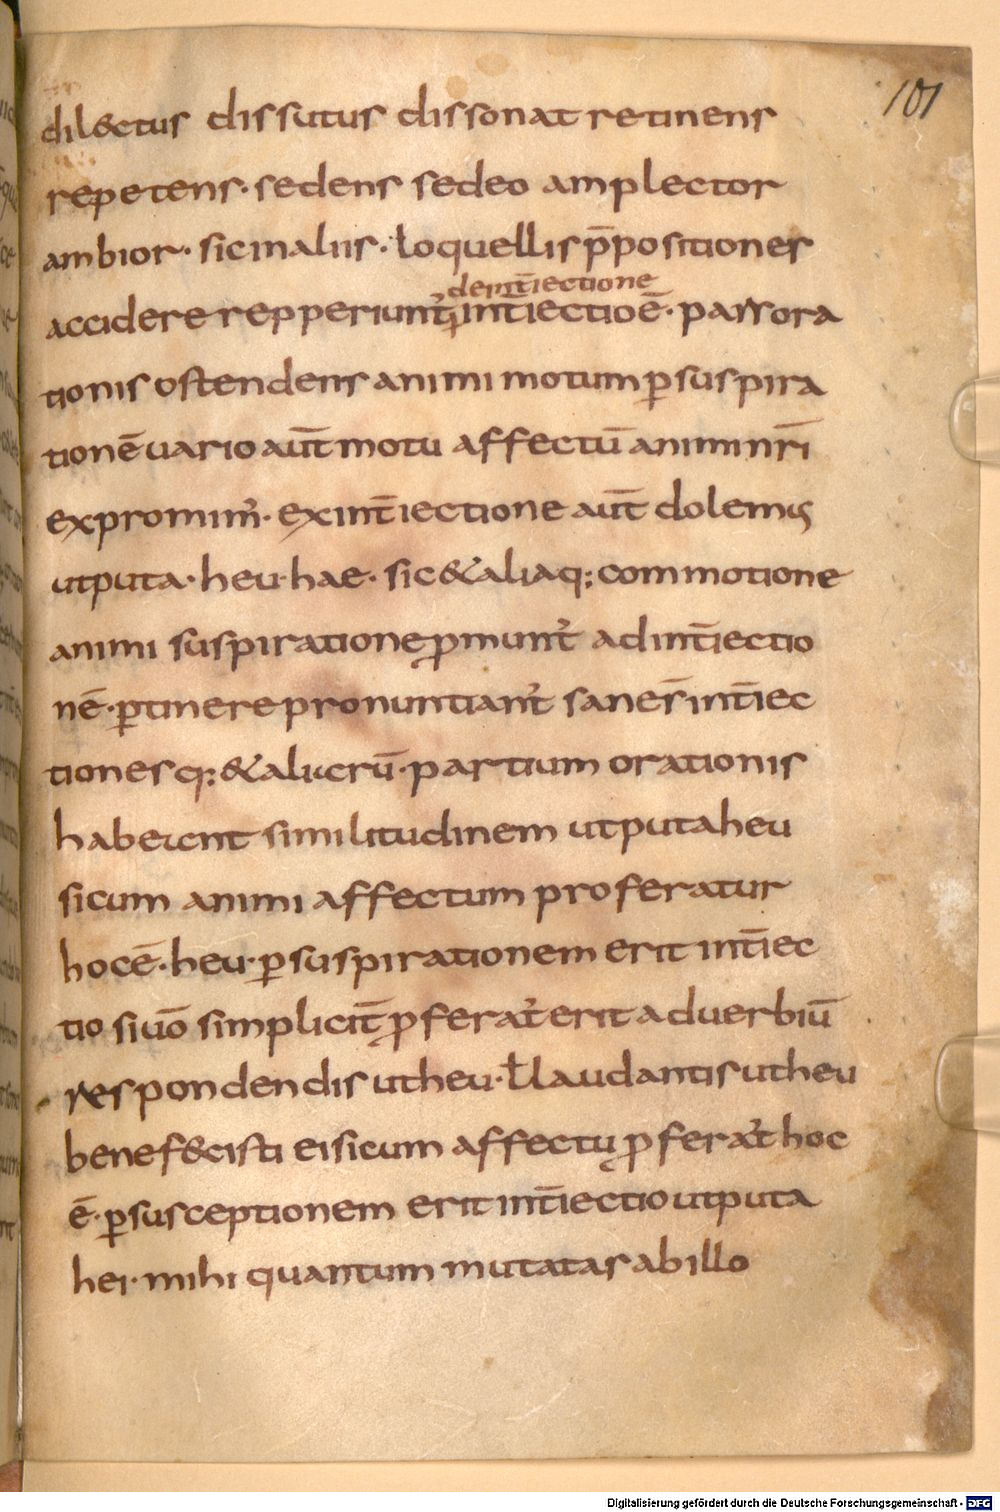 101
dil&ctus dissutus dissonat retinens
repetens· sedens sedeo amplector
ambior· sic in aliis· loquellis p̄positiones
de int̄iectione
accidere repperiunt᷒ int̄iectio ē· pars ora
tionis ostendens animi motum ꝑ suspira
tionē uario aut̄ motu affectū animi nr̄i
expromim᷒· ex int̄iectione aut̄ dolemus
utputa· heu· hae· sic & aliaq; commotione
animi suspiratione ꝓmunt᷒ ad int̄iectio
nē· ꝑtinere pronuntiant᷒ sane s̄ int̄iec
tionesq; & aliarū· partium orationis
habent similitudinem utputa heu
si cum animi affectum proferatur
hoc ē· heu· ꝑ suspirationem erit int̄iec
tio si uō simplicit̄ ꝓferat᷒ erit aduerbiū
respondendis ut heu· ł laudantis ut heu
bene f&cisti ei si cum affectu ꝓferat᷒ hoc
ē· ꝑ susceptionem erit int̄iectio utputa
hei· mihi quantum mutatas ab illo
Digitalisierung gefördert durch die Deutsche Forschungsgemeinschaft - DFG